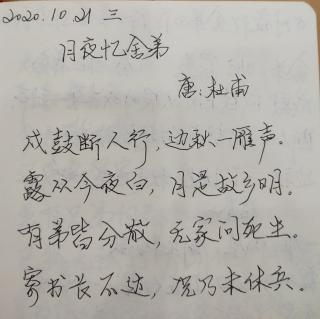 2020.10.21 三
月夜忆舍弟
唐:杜甫
戍鼓断人行,边秋一雁声。
露从今夜白,月是故乡明。
有弟皆分散,无家问死生。
寄书长不达,况乃未休兵。